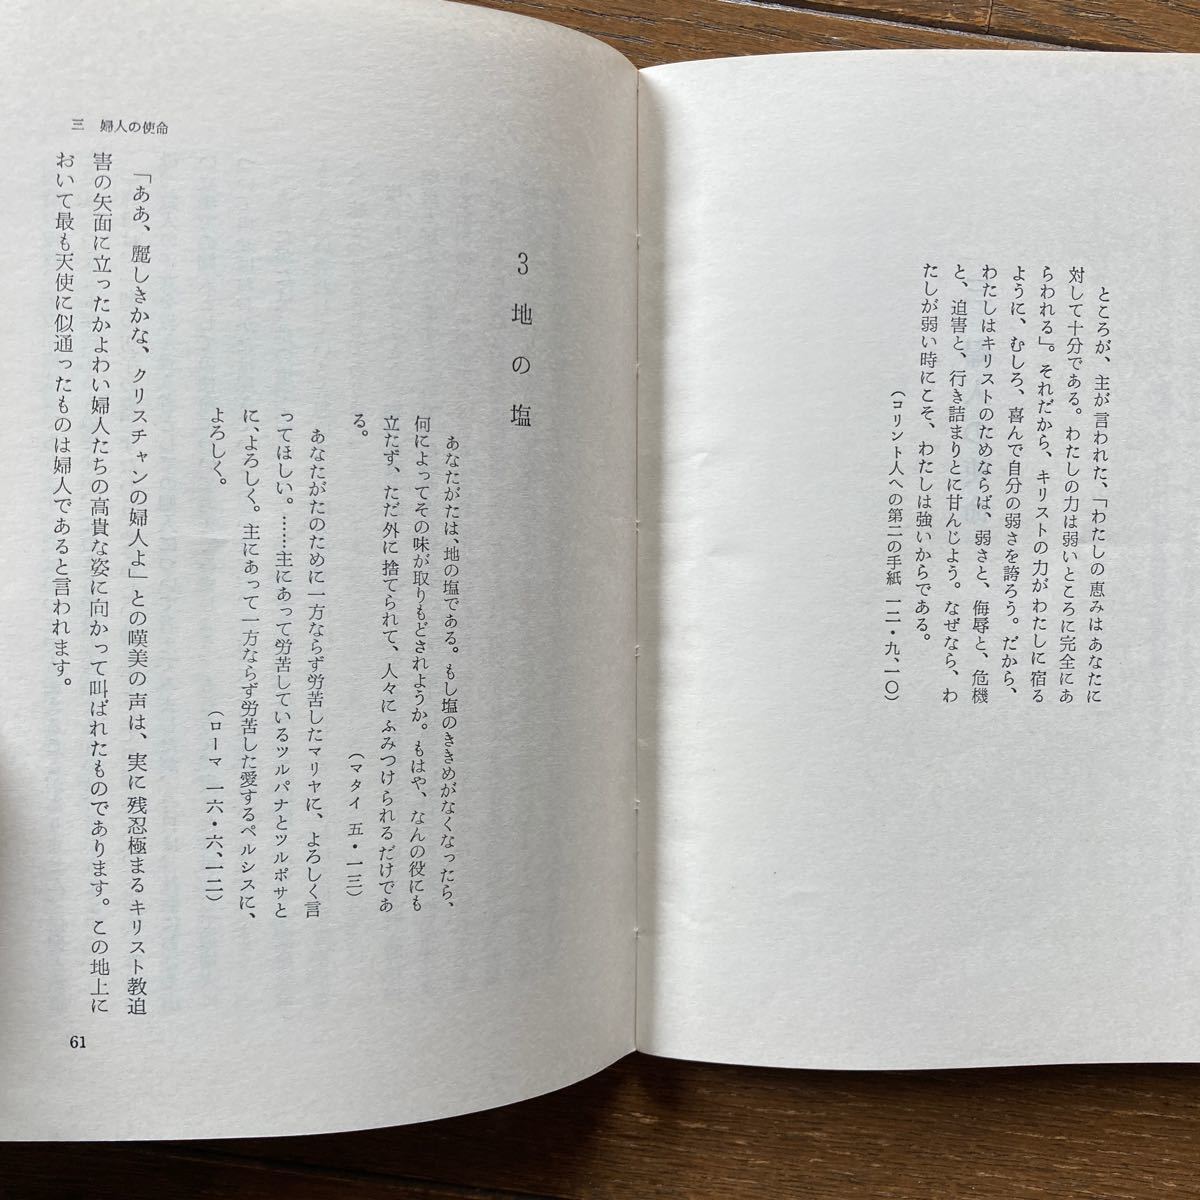 ところが、主が言われた、「わたしの恵みはあなたに
対して十分である。わたしの力は弱いところに完全にあ
らわれる」。それだから、キリストの力がわたしに宿る
ように、むしろ、喜んで自分の弱さを誇ろう。だから、
わたしはキリストのためならば、弱さと、侮辱と、危機
と、迫害と、行き詰まりとに甘んじよう。なぜなら、わ
たしが弱い時にこそ、わたしは強いからである。
（コリント人への第二の手紙 一二・九、一〇）
三 婦人の使命
3 地の塩
あなたがたは、地の塩である。もし塩のききめがなくなったら、
何によってその味が取りもどされようか。もはや、なんの役にも
立たず、ただ外に捨てられて、人々にふみつけられるだけであ
る。
（マタイ 五・一三）
あなたがたのために一方ならず労苦したマリヤに、よろしく言
ってほしい。……主にあって労苦しているツルパナとツルポサと
に、よろしく。主にあって一方ならず労苦した愛するペルシスに、
よろしく。
（ローマ 一六・六、一二）
「ああ、麗しきかな、クリスチャンの婦人よ」との嘆美の声は、実に残忍極まるキリスト教迫
害の矢面に立ったかよわい婦人たちの高貴な姿に向かって叫ばれたものであります。この地上に
おいて最も天使に似通ったものは婦人であると言われます。
61